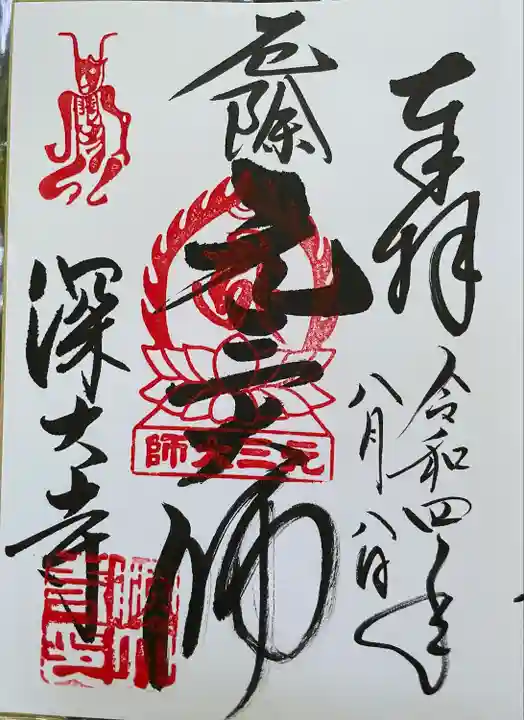 奉拝
令和四年
八月八日
厄除
元三大師
師大三元
深大寺